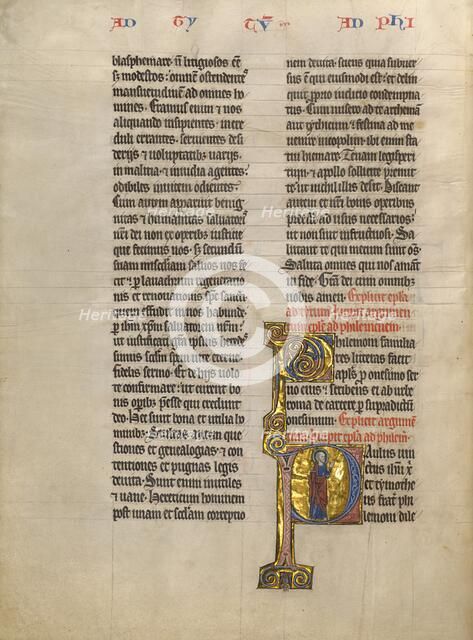 AD TY TVM AD PHI
blasphemare n̄ litigiosos eē
s; modestos: omnem ostendentes
mansuetudinem ad omnes ho
mines. Eramus enim et nos
aliquando insipientes. incre
duli errantes. seruientes desi
derijs ⁊ uoluptatibus uarijs.
in malitia ⁊ inuidia agentes:
odibiles inuicem odientes.
Cum autem apparuit benig
nitas ⁊ humanitas saluatoris
n̄ri dei non ex operibus iusticie
que fecimus nos. s; secundū
suam misc̄diam saluos nos fe
cit: ꝑ lauacrum regenerationis
et renouationis sp̄c sancti
quem effudit in nos habunde
ꝑ ih̄m xp̄m saluatorem n̄rm:
ut iustificati grā ipsius heredes
simus scd̄m spem uite eterne.
fidelis sermo. Et de hijs uolo
te confirmare: ut curent bo
nis operibus preesse qui credunt
deo. Hec sunt bona et utilia ho
minibus. Stultas autem que
stiones et genealogias ⁊ con
tentiones et pugnas legis
deuita. Sunt enim inutiles
⁊ uane. Hereticum hominem
post unam et scd̄am correptio
nem deuita: sciens quia subuer
sus ē qui eiusmodi est: et delin
quit ꝓprio iudicio condempna
tus. Cum misero ad te arthemam
aut thychicum: festina ad me
uenire nicopolim: ibi enim sta
tui hyemare. Zenam legisperi
tum ⁊ apollo sollicite premit
te: ut nichil illis desit. Discant
autem et n̄ri bonis operibus
preesse ad usus necessarios:
ut non sint infructuosi. Sa
lutant te qui mecum sunt om̄s.
Saluta omnes qui nos amant
in fide. Grā dei cum omnibus
uobis amen. Explicit epl̄a
ad tytum. Incipit argumen
tum epl̄e ad philemonem.
Philemoni familia
res litteras facit
ꝓ onesimo ser
uo eius ⁊ scribens ei ab urbe
roma de carcere ꝑ supradictum
onesimum. Explicit argumē
tum. incipit epl̄a ad philem̄.
Paulus uin
ctus ih̄u x̄
et tymothe
us frater phi
lemoni dile
Heritage
Heritage